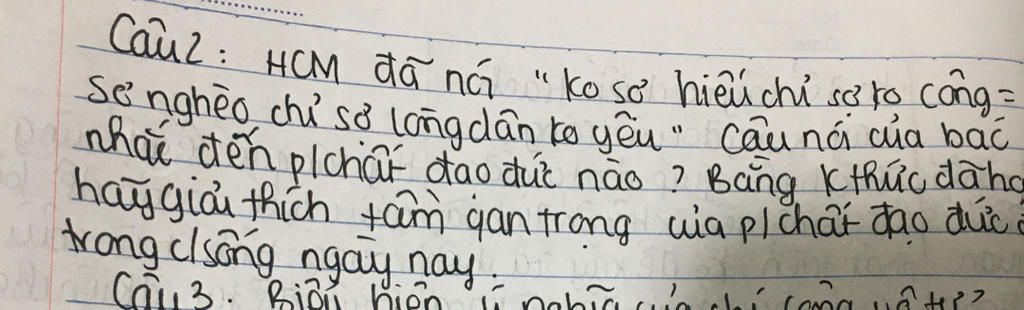 Câu2: HCM đã nói "ko sợ hiếu chỉ sợ ko công =
sợ nghèo chỉ sợ lòng dân ko yêu" Câu nói của bác
nhắc đến p/chất đạo đức nào? Bằng kthức đã học
hãy giải thích tầm qan trọng của p/chất đạo đức
trong c/sống ngày nay.
Câu3. Biểu hiện ý nghĩa của chí công vô tư?